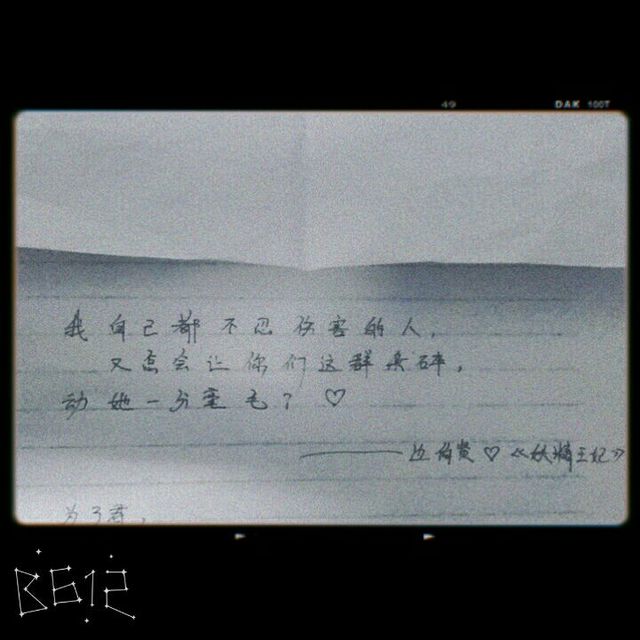 49 DAK 100T
我自己都不忍伤害的人,
又怎会让你们这群杂碎,
动她一分毫毛? ♡
——边伯贤♡《妖精王记》
为了
B612